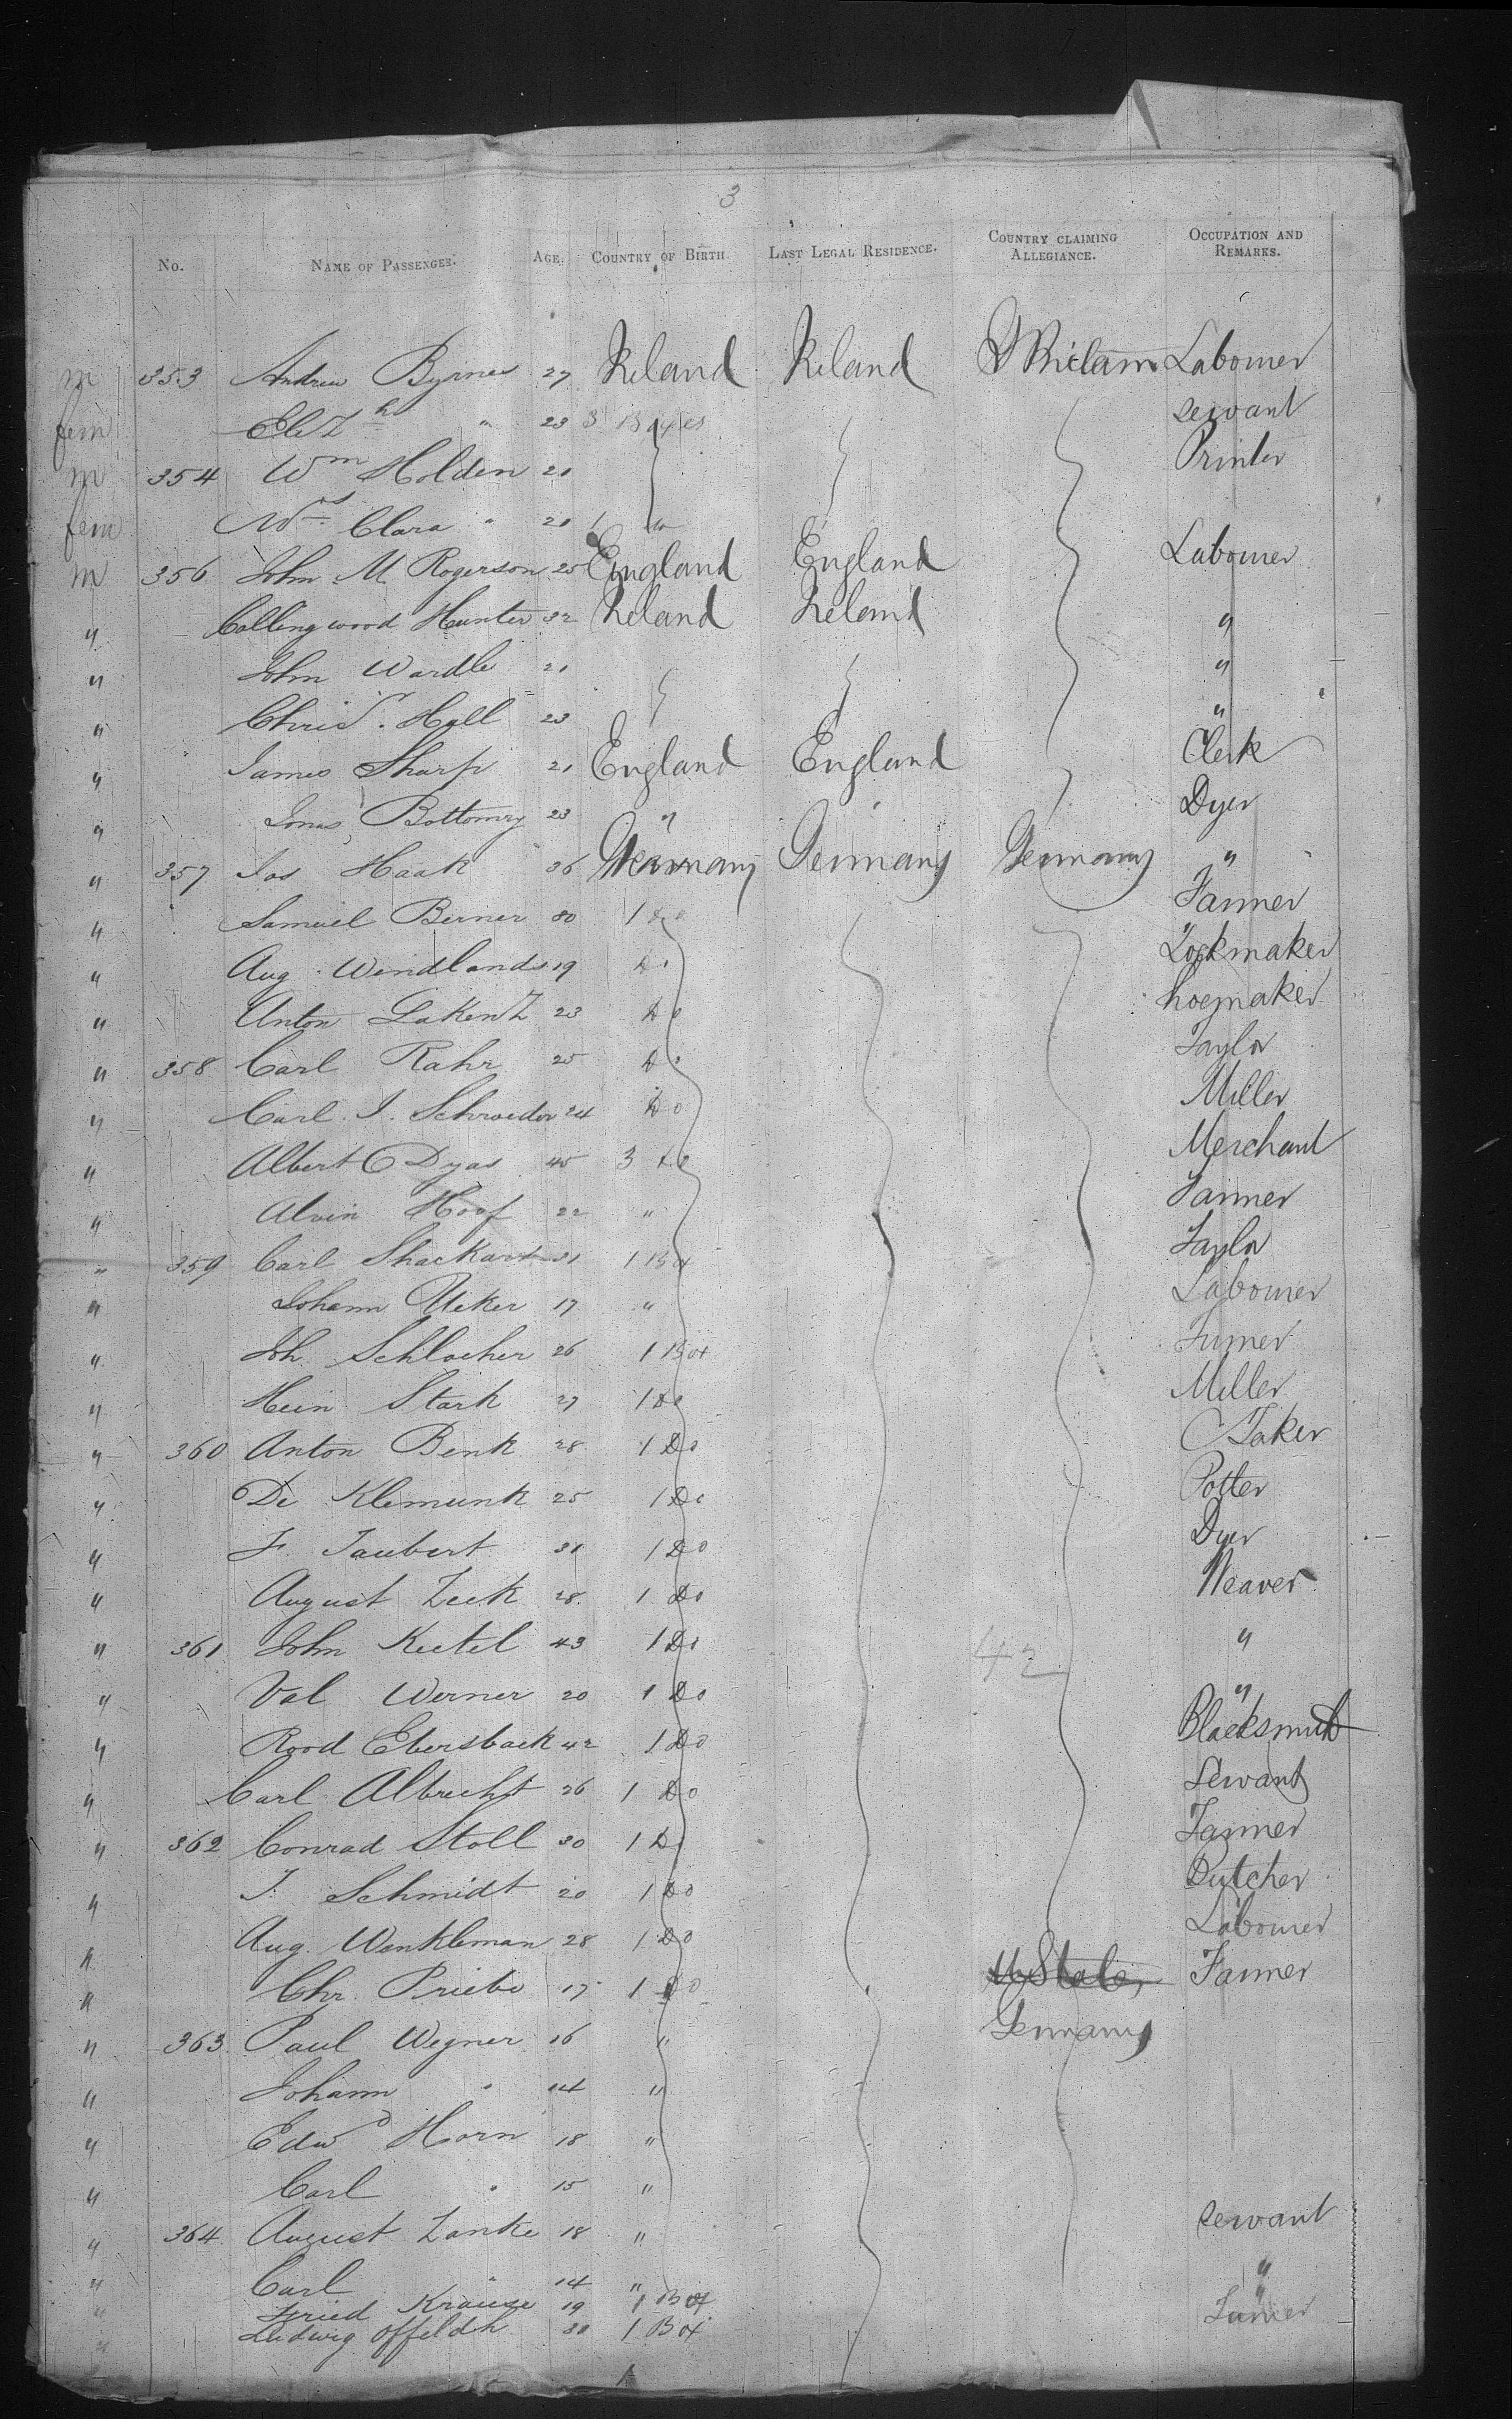 3
No. NAME OF PASSENGER. AGE. COUNTRY OF BIRTH. LAST LEGAL RESIDENCE. COUNTRY CLAIMING ALLEGIANCE. OCCUPATION AND REMARKS.
m 353 Andrew Byrnes 27 Ireland Ireland Labourer
fem Eliz h " 23 3 Boxes servant
m 354 Wm Holden 20 Printer
fem Mrs Clara " 20 1 "
m 356 John M Rogerson 25 England England Labourer
" Collingwood Hunter 32 Ireland Ireland "
" John Wardle 21 "
" Christr. Hall 23 "
" James Sharp 21 England England Clerk
" Jonas Bottomry 23 " Dyer
" 357 Jos Haak 36 Germany Germany Germany "
" Samuel Berner 30 1 Do Farmer
" Aug. Wendlands 19 Do Lockmaker
" Anton Lakentz 23 Do hoemaker
" 358 Carl Rahr 25 Do Taylor
" Carl J. Schroeder 24 Do Miller
" Albert C Dyas 45 3 Do Merchant
" Alvin Hoof 22 " Farmer
" 359 Carl Shackart 31 1 Box Taylor
" Johann Ueker 17 " Labourer
" Joh. Schlocher 26 1 Box Turner
" Hein Stark 27 1 Do Miller
" 360 Anton Benk 28 1 Do
" De Klemunk 25 1 Do Potter
" F. Taubert 31 1 Do Dyer
" August Zeek 28 1 Do Weaver
" 361 John Keetel 43 1 Do 42 "
" Val Werner 20 1 Do "
" Rood Ebersback 42 1 Do Blacksmith
" Carl Albrecht 26 1 Do Servant
" 362 Conrad Stoll 30 1 Do Farmer
" J. Schmidt 20 1 Do Butcher
" Aug. Wenkleman 28 1 Do Labourer
" Chr. Priebe 17 1 Do U States Farmer
" 363 Paul Wegner 16 " Germany
" Johann " 14 "
" Edwd Horn 18 "
" Carl " 15 "
" 364 August Zanke 18 " servant
" Carl " 14 " "
" Fried Krause 19 1 Box "
" Ludwig Offeldh 30 1 Box Farmer